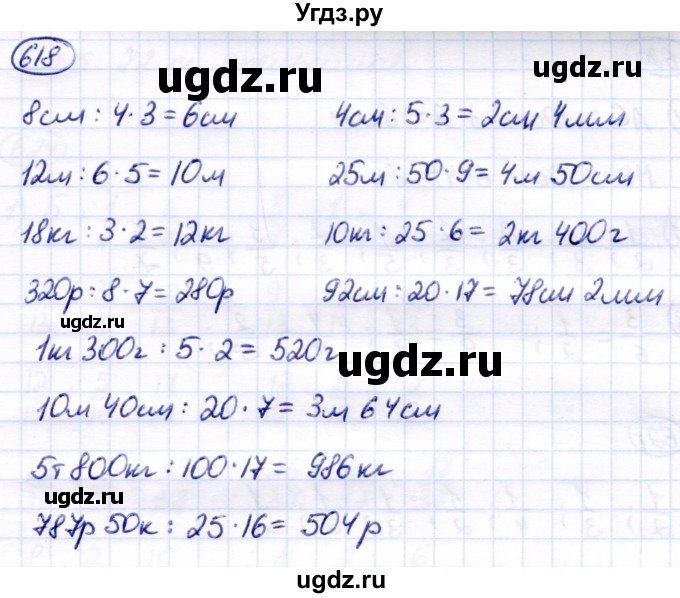 Угдз.ру
618
ugdz.ru
ugdz.ru
8см : 4 · 3 = 6см 4см : 5 · 3 = 2см 4мм
12м : 6 · 5 = 10м 25м : 50 · 9 = 4м 50см
18кг : 3 · 2 = 12кг 10кг : 25 · 6 = 2кг 400г
320р : 8 · 7 = 280р 92см : 20 · 17 = 78см 2мм
ugdz.ru
1кг 300г : 5 · 2 = 520г
ugdz.ru
10м 40см : 20 · 7 = 3м 64см
5т 800кг : 100 · 17 = 986кг
ugdz.ru
ugdz.ru
787р 50к : 25 · 16 = 504р
ugdz.ru